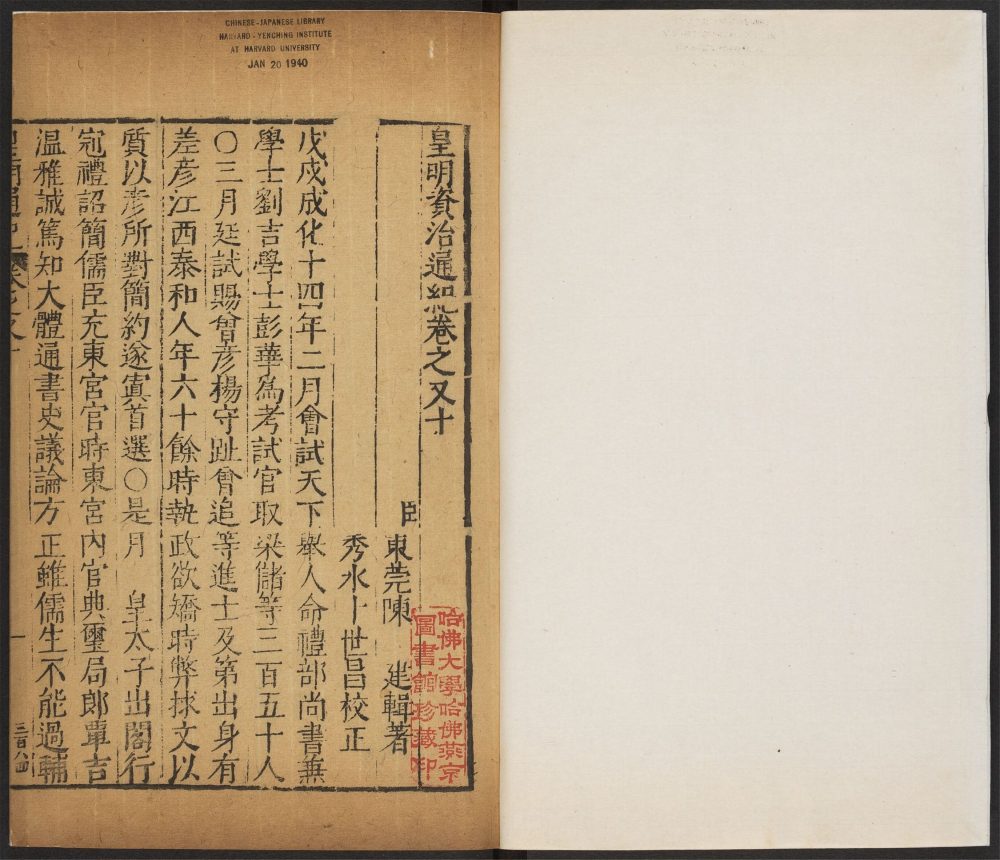 CHINESE-JAPANESE LIBRARY
HARVARD-YENCHING INSTITUTE
AT HARVARD UNIVERSITY
JAN 20 1940
皇明資治通紀卷之又十
臣東莞陳建輯著
秀水卜世昌校正
戊戌成化十四年二月會試天下舉人命禮部尚書兼
學士劉吉學士彭華爲考試官取梁儲等三百五十人
〇三月廷試賜曾彦楊守阯曾追等進士及第出身有
差彦江西泰和人年六十餘時執政欲矯時弊捄文以
質以彦所對簡約遂寘首選〇是月皇太子出閣行
冠禮詔簡儒臣充東宮官時東宮内官典璽局郎覃吉
温雅誠篤知大體通書史議論方正雖儒生不能過輔
哈佛大學哈佛燕京
圖書館珍藏印
一
三百八四